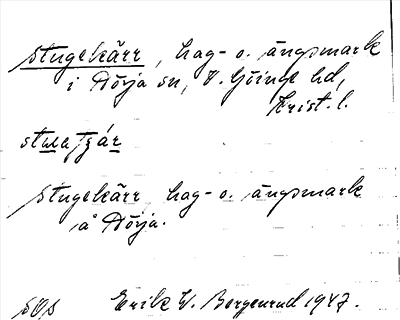 Stugekärr, hag- o. ängsmark
i Nörja sn, V. Göinge hd,
Krist. l.
Stugekärr hag- o. ängsmark
å Nörja.
SOS Erik W. Borgenrud 1947.